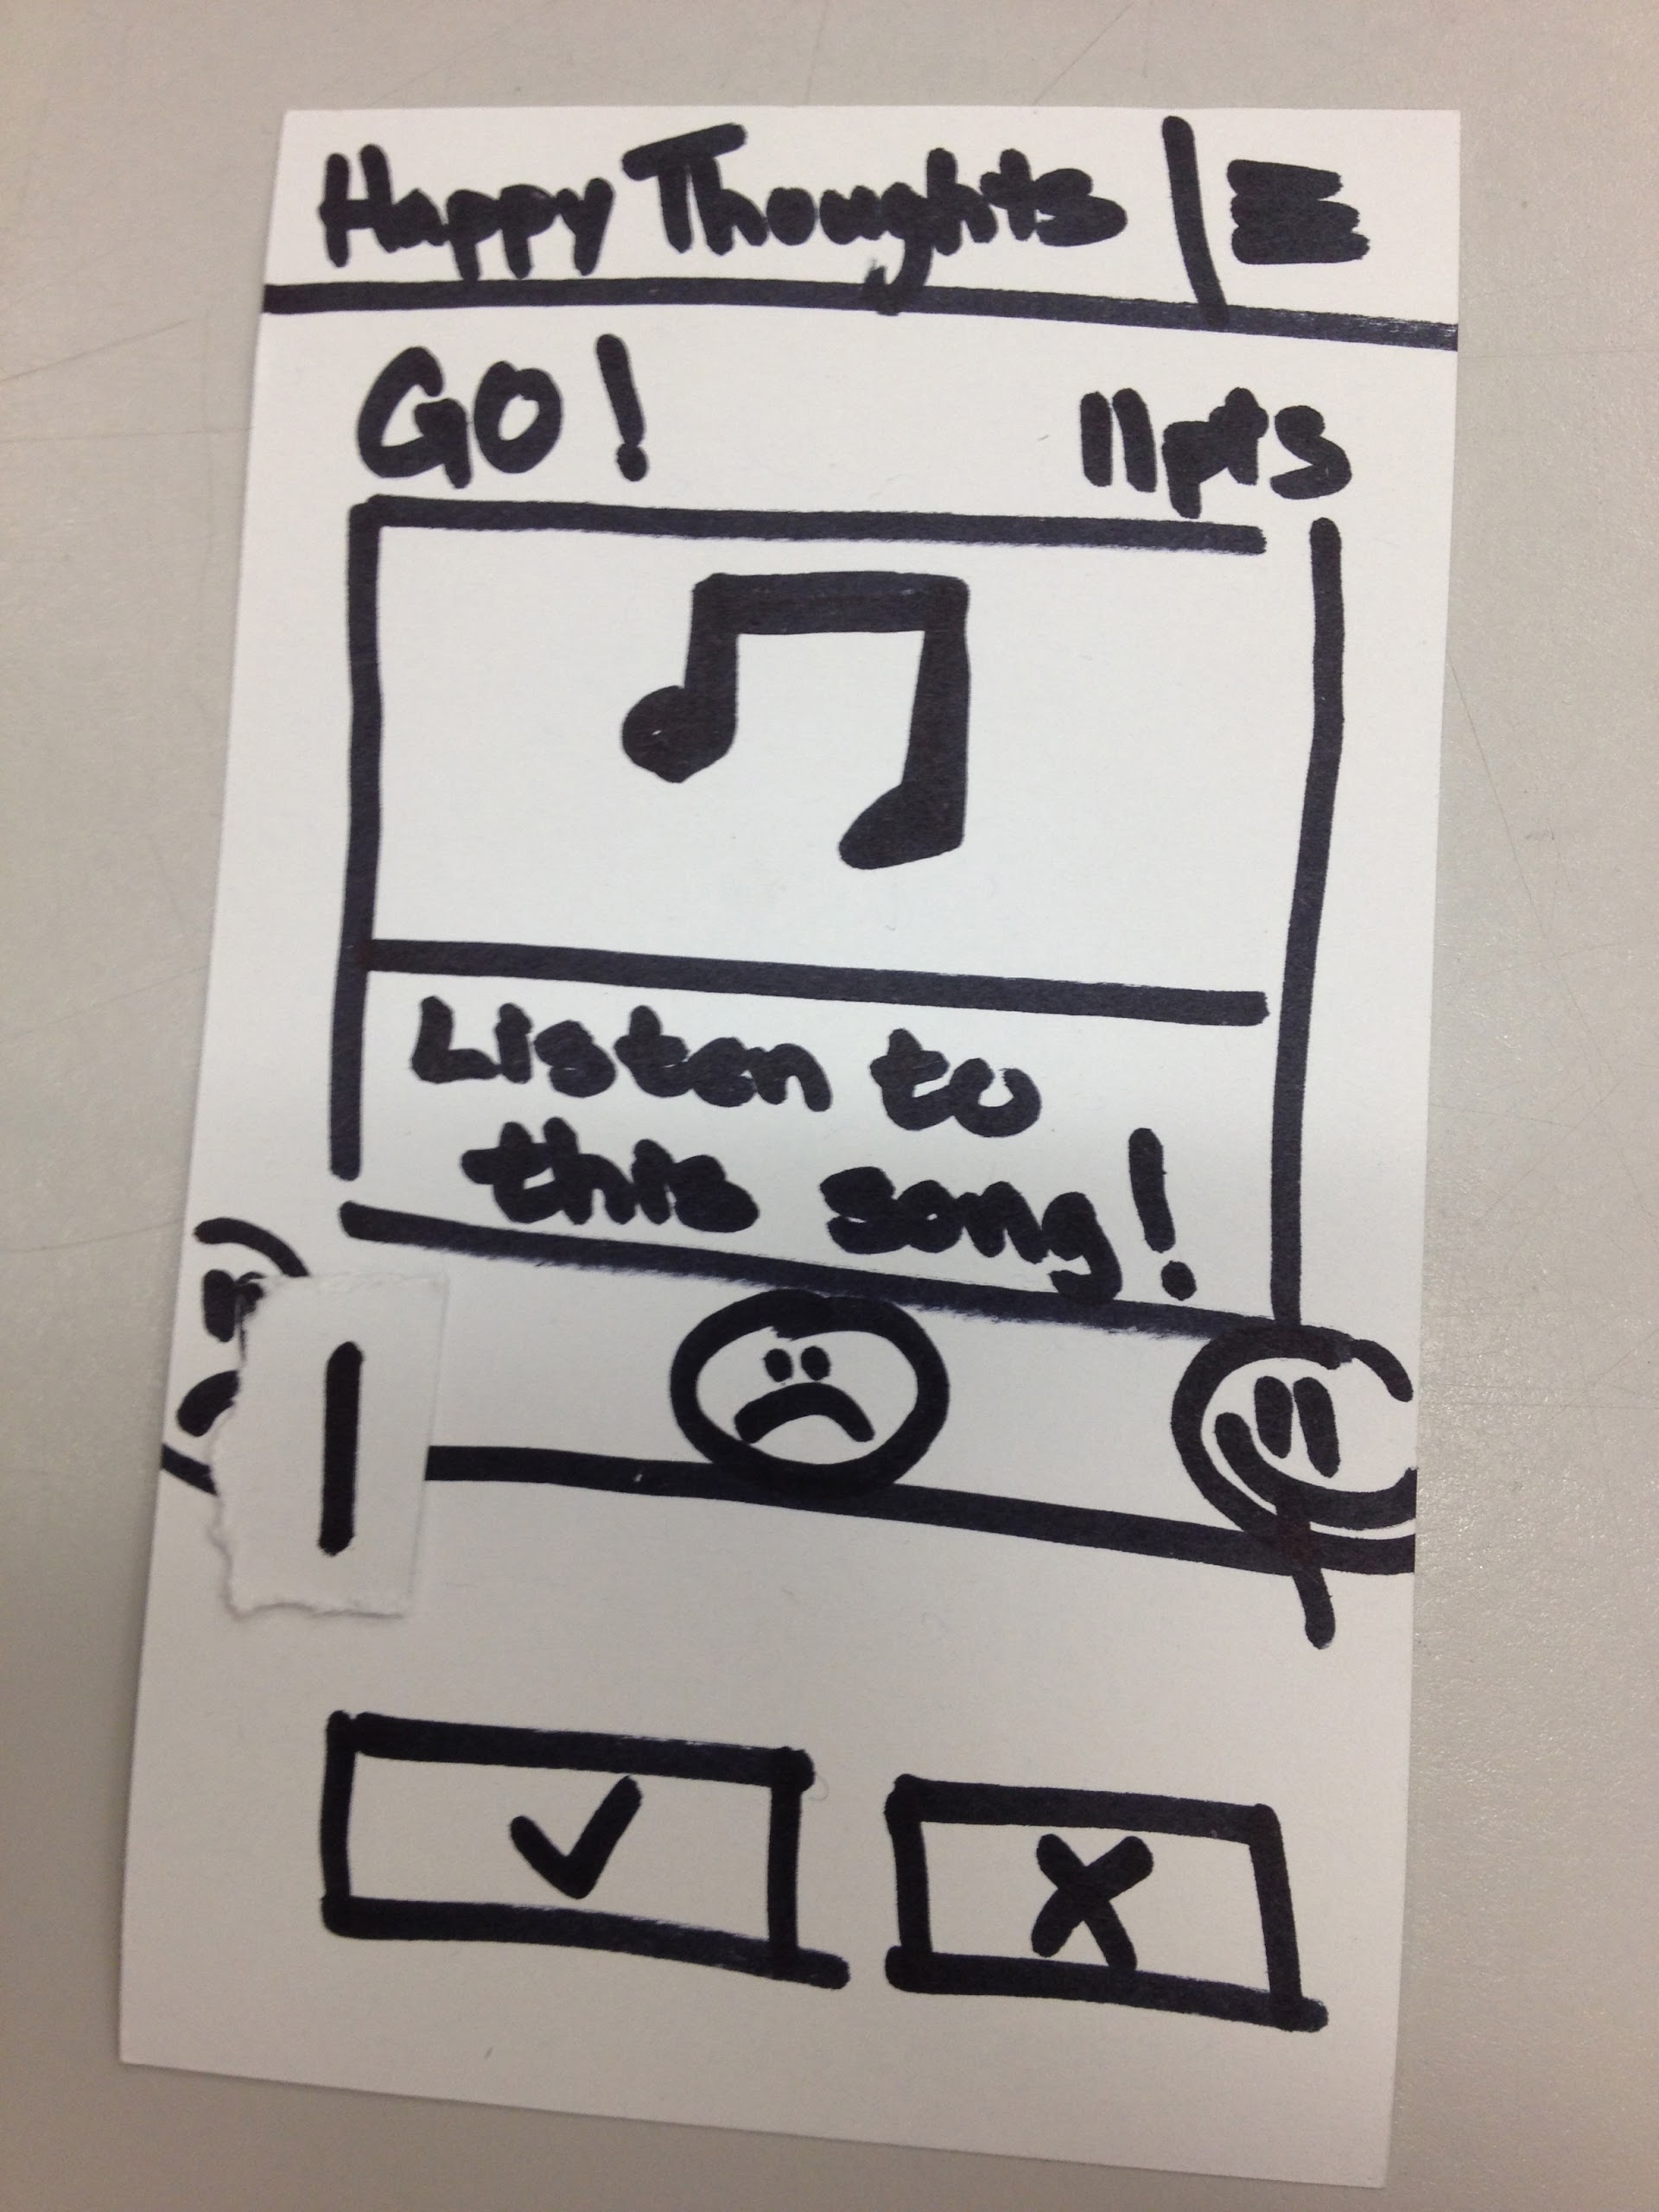 Happy Thoughts
GO!
11pts
Listen to
this song!